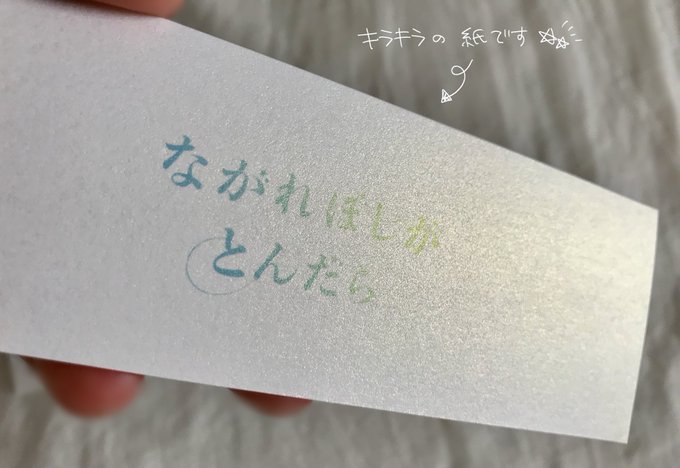 キラキラの 紙です
ながれぼしが
とんだら